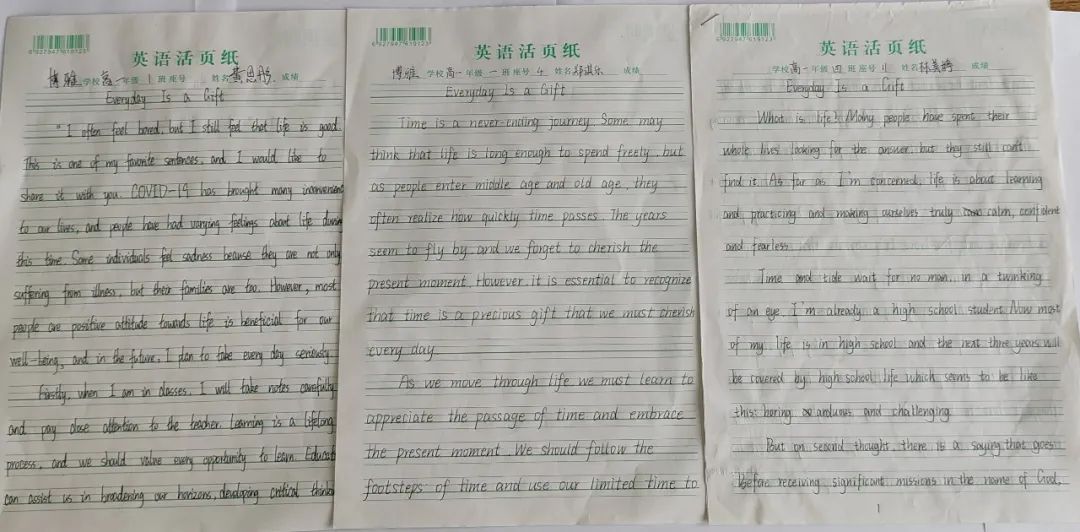 6927947619123
英语活页纸
博雅 学校 高一年级 1 班座号 姓名 成绩
Everyday Is a Gift
"I often feel bored, but I still feel that life is good.
This is one of my favorite sentences, and I would like to
share it with you. COVID-19 has brought many inconvenient
to our lives, and people have had varying feelings about life during
this time. Some individuals feel sadness because they are not only
suffering from illness, but their families are too. However, most
people are positive attitude towards life is beneficial for our
well-being, and in the future, I plan to take every day seriously.
Firstly, when I am in classes, I will take notes carefully
and pay close attention to the teacher. Learning is a lifelong
process, and we should value every opportunity to learn. Educati
can assist us in broadening our horizons, developing critical thinkin
6927947619123
英语活页纸
博雅 学校 高一年级 一 班座号 4 姓名 郑淇乐 成绩
Everyday Is a Gift
Time is a never-ending journey. Some may
think that life is long enough to spend freely, but
as people enter middle age and old age, they
often realize how quickly time passes. The years
seem to fly by and we forget to cherish the
present moment. However, it is essential to recognize
that time is a precious gift that we must cherish
every day.
As we move through life we must learn to
appreciate the passage of time and embrace
the present moment. We should follow the
footsteps of time and use our limited time to
6927947619123
英语活页纸
学校 高一年级 四 班座号 11 姓名 林美婷 成绩
Everyday Is a Gift
What is life? Many people have spent their
whole lives looking for the answer, but they still can't
find it. As far as I'm concerned, life is about learning
and practicing and making ourselves truly calm, confident
and fearless.
Time and tide wait for no man, in a twinking
of an eye, I'm already a high school student. Now most
of my life is in high school and the next three years will
be covered by high school life which seems to be like
this: boring, arduous and challenging.
But on second thought, there is a saying that goes
"Before receiving significant missions in the name of God,
1